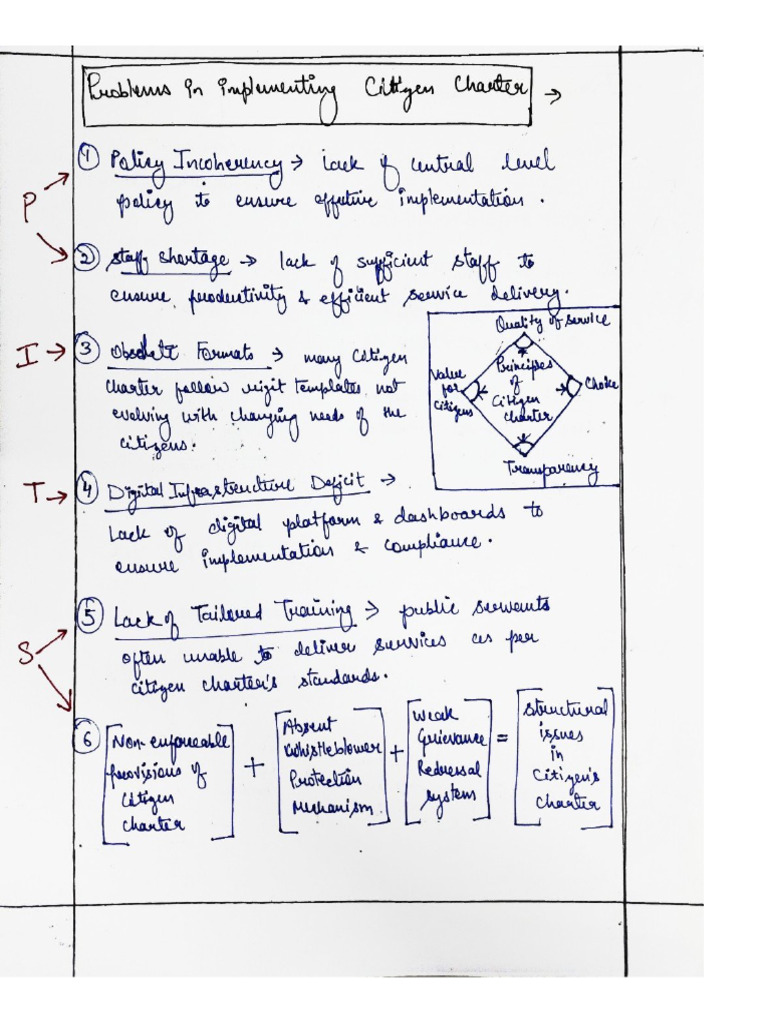 Problems in implementing Citizen Charter →
① Policy Incoherency → Lack of central level
policy to ensure effective implementation.
P
② Staff shortage → lack of sufficient staff to
ensure productivity & efficient service delivery.
I → ③ Obsolete Formats → many citizen
charter follow rigit templates, not
evolving with changing needs of the
citizens.
Quality of service
Value
for
citizens
Principles
of
Citizen
charter
Choice
Transparency
T → ④ Digital Infrastructure Deficit →
Lack of digital platform & dashboards to
ensure implementation & compliance.
⑤ Lack of Tailored Training → public servants
S
often unable to deliver services as per
citizen charter's standards.
⑥
[Non-enforceable
provisions of
Citizen
charter]
+
[Absent
Whistleblower
Protection
Mechanism]
+
[Weak
Grievance
Redressal
system]
=
[Structural
issues
in
Citizen's
Charter]